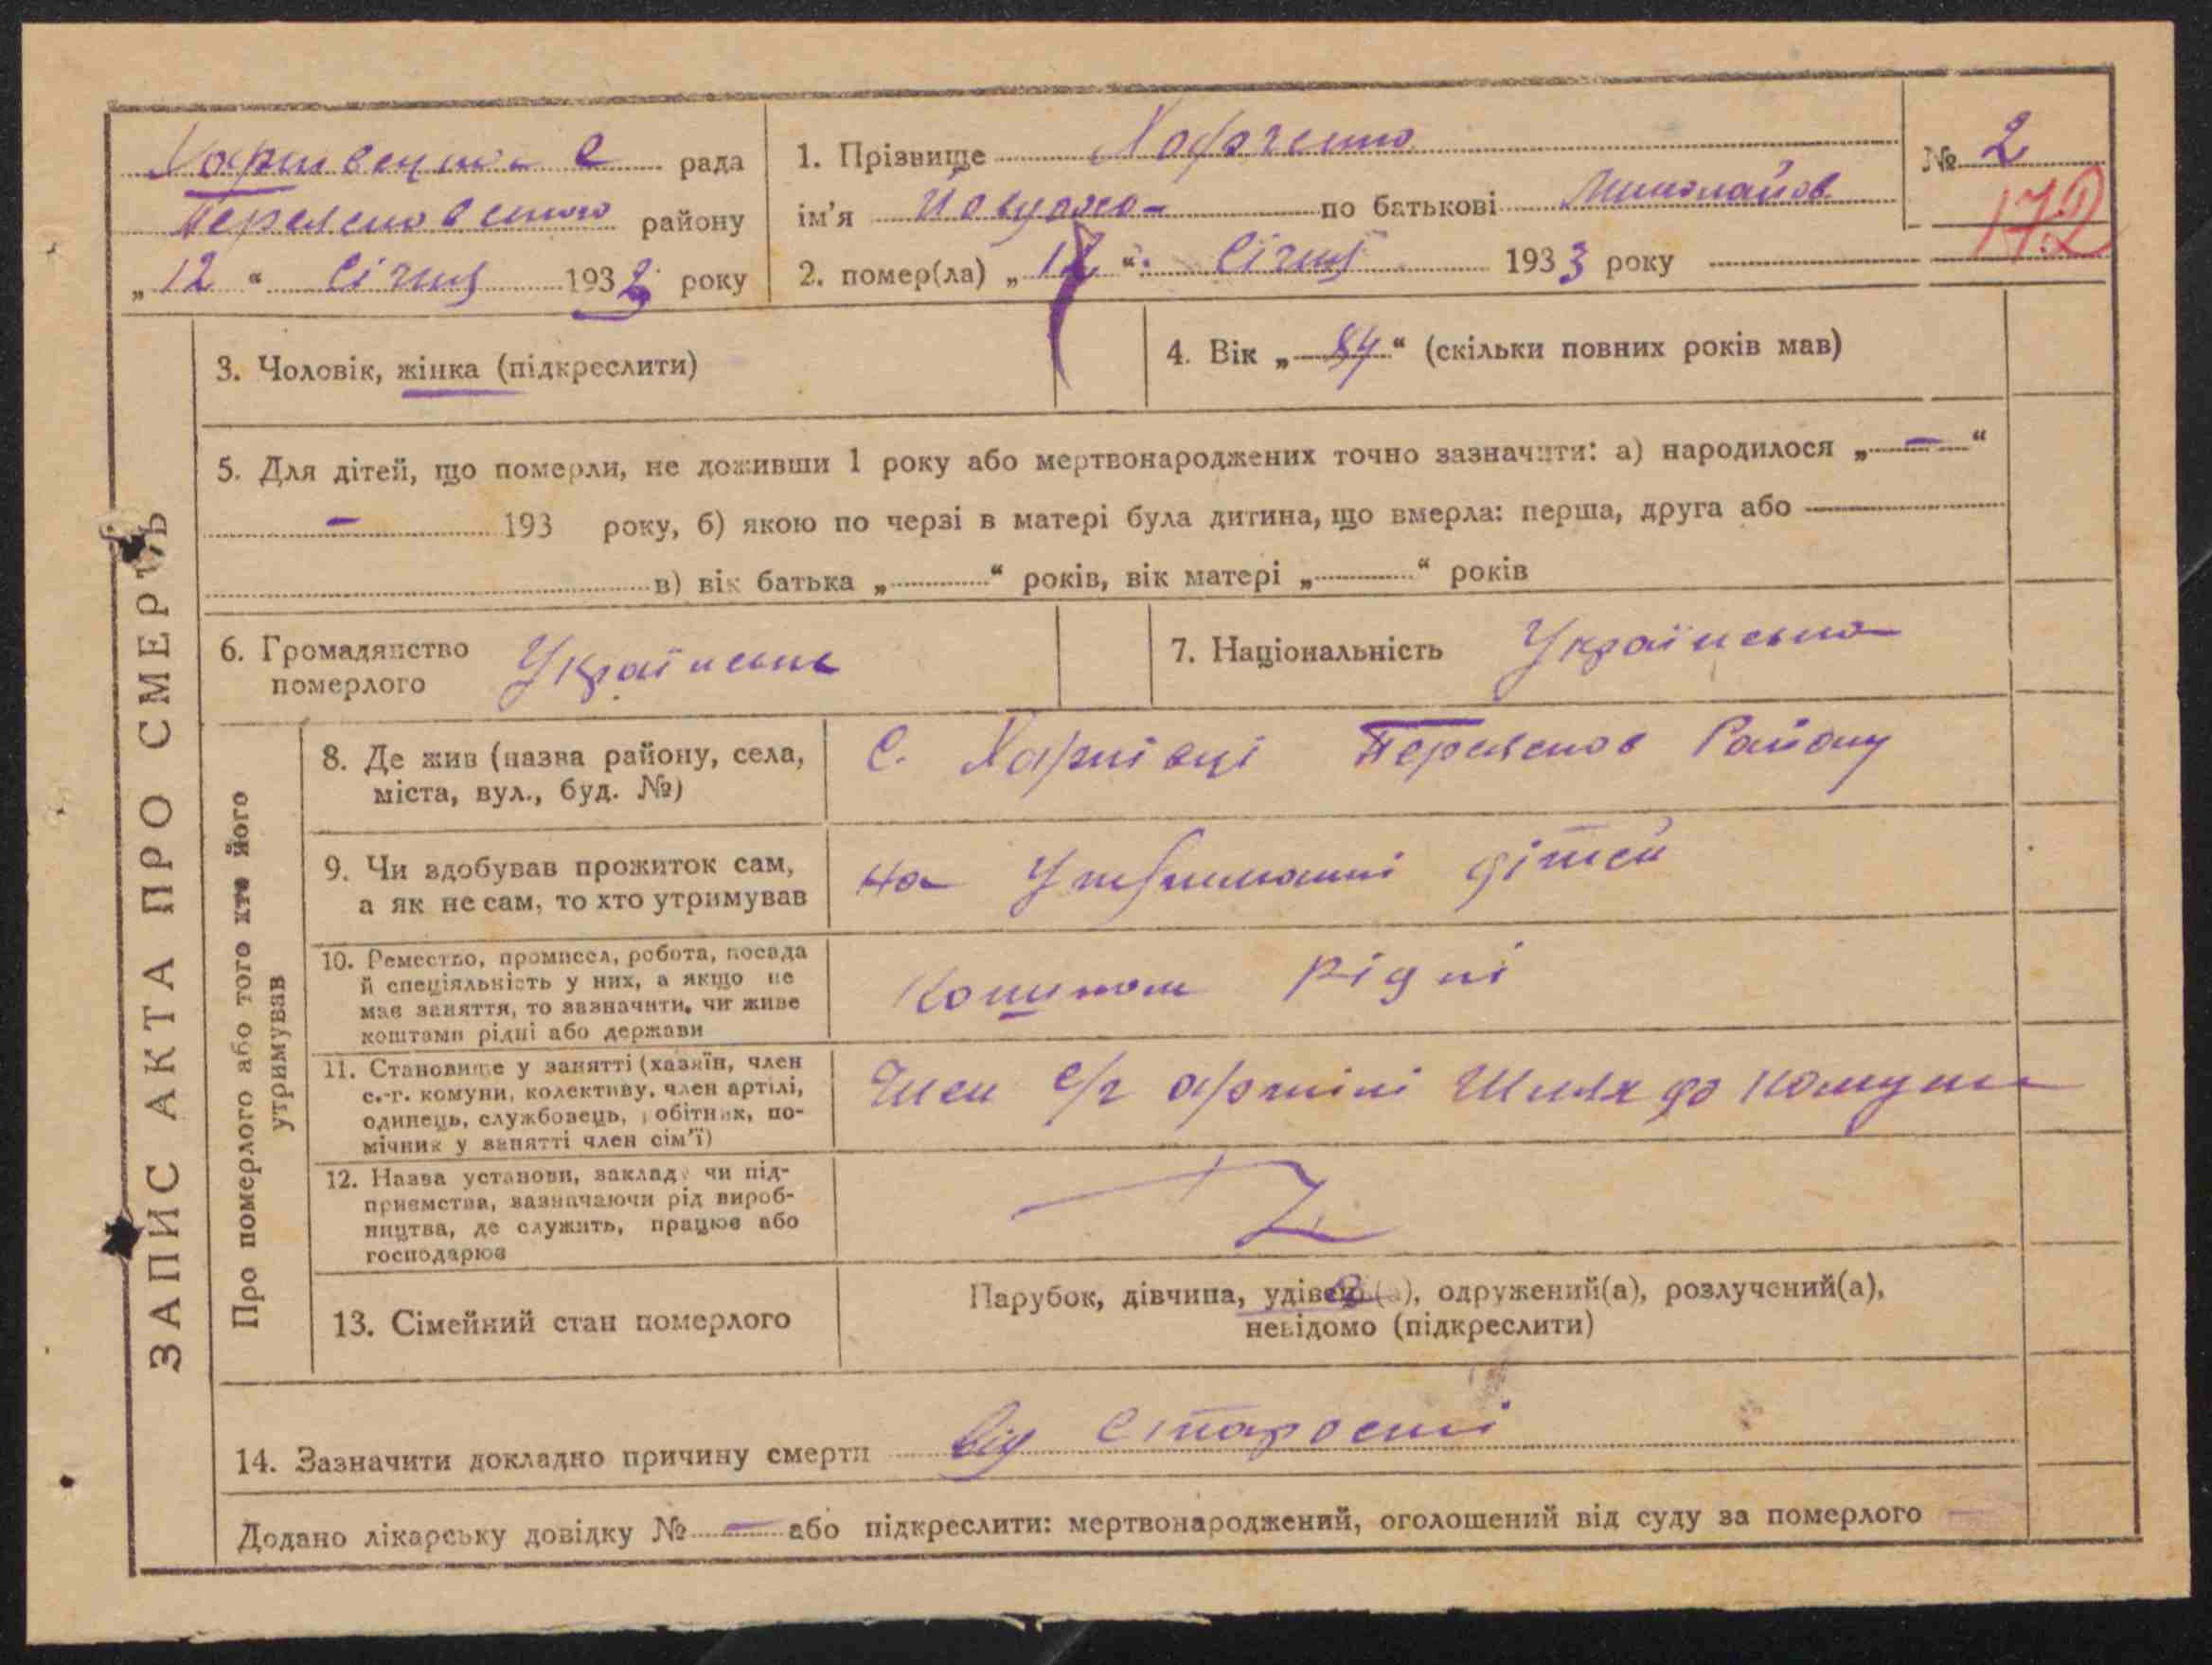 Харківецька С рада
Переяславського району
„ 12 “ Січня 1933 року
1. Прізвище
ім'я по батькові Миколаїв
2. помер(ла) „ “ Січня 1933 року
№ 2
172
ЗАПИС АКТА ПРО СМЕРТЬ
3. Чоловік, жінка (підкреслити)
4. Вік „ 84 “ (скільки повних років мав)
5. Для дітей, що померли, не доживши 1 року або мертвонароджених точно зазначити: а) народилося „ — “
— 193 року, б) якою по черзі в матері була дитина, що вмерла: перша, друга або
в) вік батька „ “ років, вік матері „ “ років
6. Громадянство
померлого
Українське
7. Національність Українська
Про померлого або того хто його
утримував
8. Де жив (назва району, села,
міста, вул., буд. №)
С. Харківці Переяслов Району
9. Чи здобував прожиток сам,
а як не сам, то хто утримував
На Утриманні дітей
10. Ремество, промисел, робота, посада
й спеціяльність у них, а якщо не
має заняття, то зазначити, чи живе
коштами рідні або держави
Коштом рідні
11. Становище у занятті (хазяїн, член
с.-г. комуни, колективу, член артілі,
одинець, службовець, робітник, по-
мічник у занятті член сім'ї)
Член с/г артілі Шлях до Комуни
12. Назва установи, закладу чи під-
приємства, зазначаючи рід вироб-
ництва, де служить, працює або
господарює
13. Сімейний стан померлого
Парубок, дівчина, удівець(а), одружений(а), розлучений(а),
невідомо (підкреслити)
14. Зазначити докладно причину смерти від Старости
Додано лікарську довідку № — або підкреслити: мертвонароджений, оголошений від суду за померлого